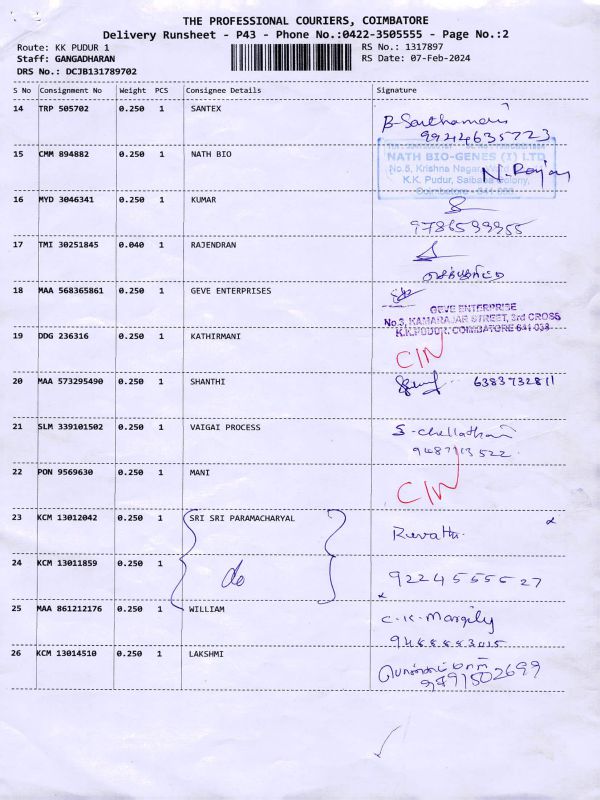 THE PROFESSIONAL COURIERS, COIMBATORE
Delivery Runsheet - P43 - Phone No.:0422-3505555 - Page No.:2
Route: KK PUDUR 1 RS No.: 1317897
Staff: GANGADHARAN RS Date: 07-Feb-2024
DRS No.: DCJB131789702
S No Consignment No Weight PCS Consignee Details Signature
14 TRP 505702 0.250 1 SANTEX
9944635723
15 CMM 894882 0.250 1 NATH BIO
NATH BIO-GENES (I) LTD
No.5, Krishna Nagar
K.K. Pudur, Saibaba Colony,
Coimbatore - 641 038
16 MYD 3046341 0.250 1 KUMAR
17 TMI 30251845 0.040 1 RAJENDRAN
18 MAA 568365861 0.250 1 GEVE ENTERPRISES
GEVE ENTERPRISE
No.3, KAMARAJAR STREET, 3rd CROSS
K.K.PUDUR, COIMBATORE 641 038
19 DDG 236316 0.250 1 KATHIRMANI
C/N
20 MAA 573295490 0.250 1 SHANTHI
6383732811
21 SLM 339101502 0.250 1 VAIGAI PROCESS
22 PON 9569630 0.250 1 MANI
C/N
23 KCM 13012042 0.250 1 SRI SRI PARAMACHARYAL
24 KCM 13011859 0.250 1 do
25 MAA 861212176 0.250 1 WILLIAM
26 KCM 13014510 0.250 1 LAKSHMI
9791502699